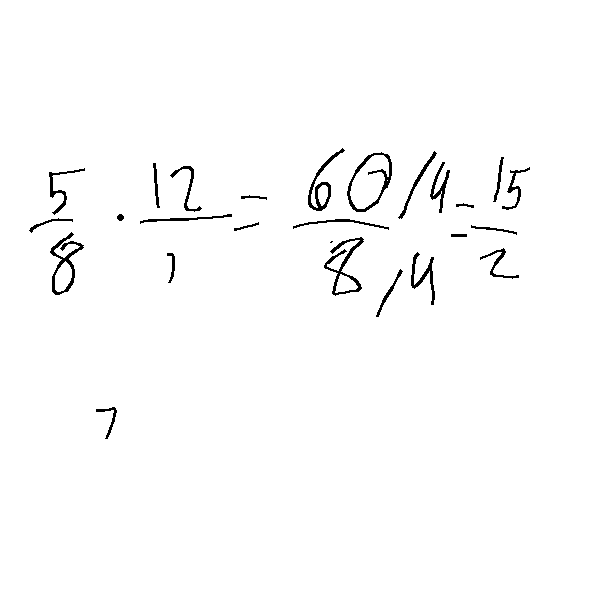 5/8 · 12/1 = 60/4 / 8/4 = 15/2
7